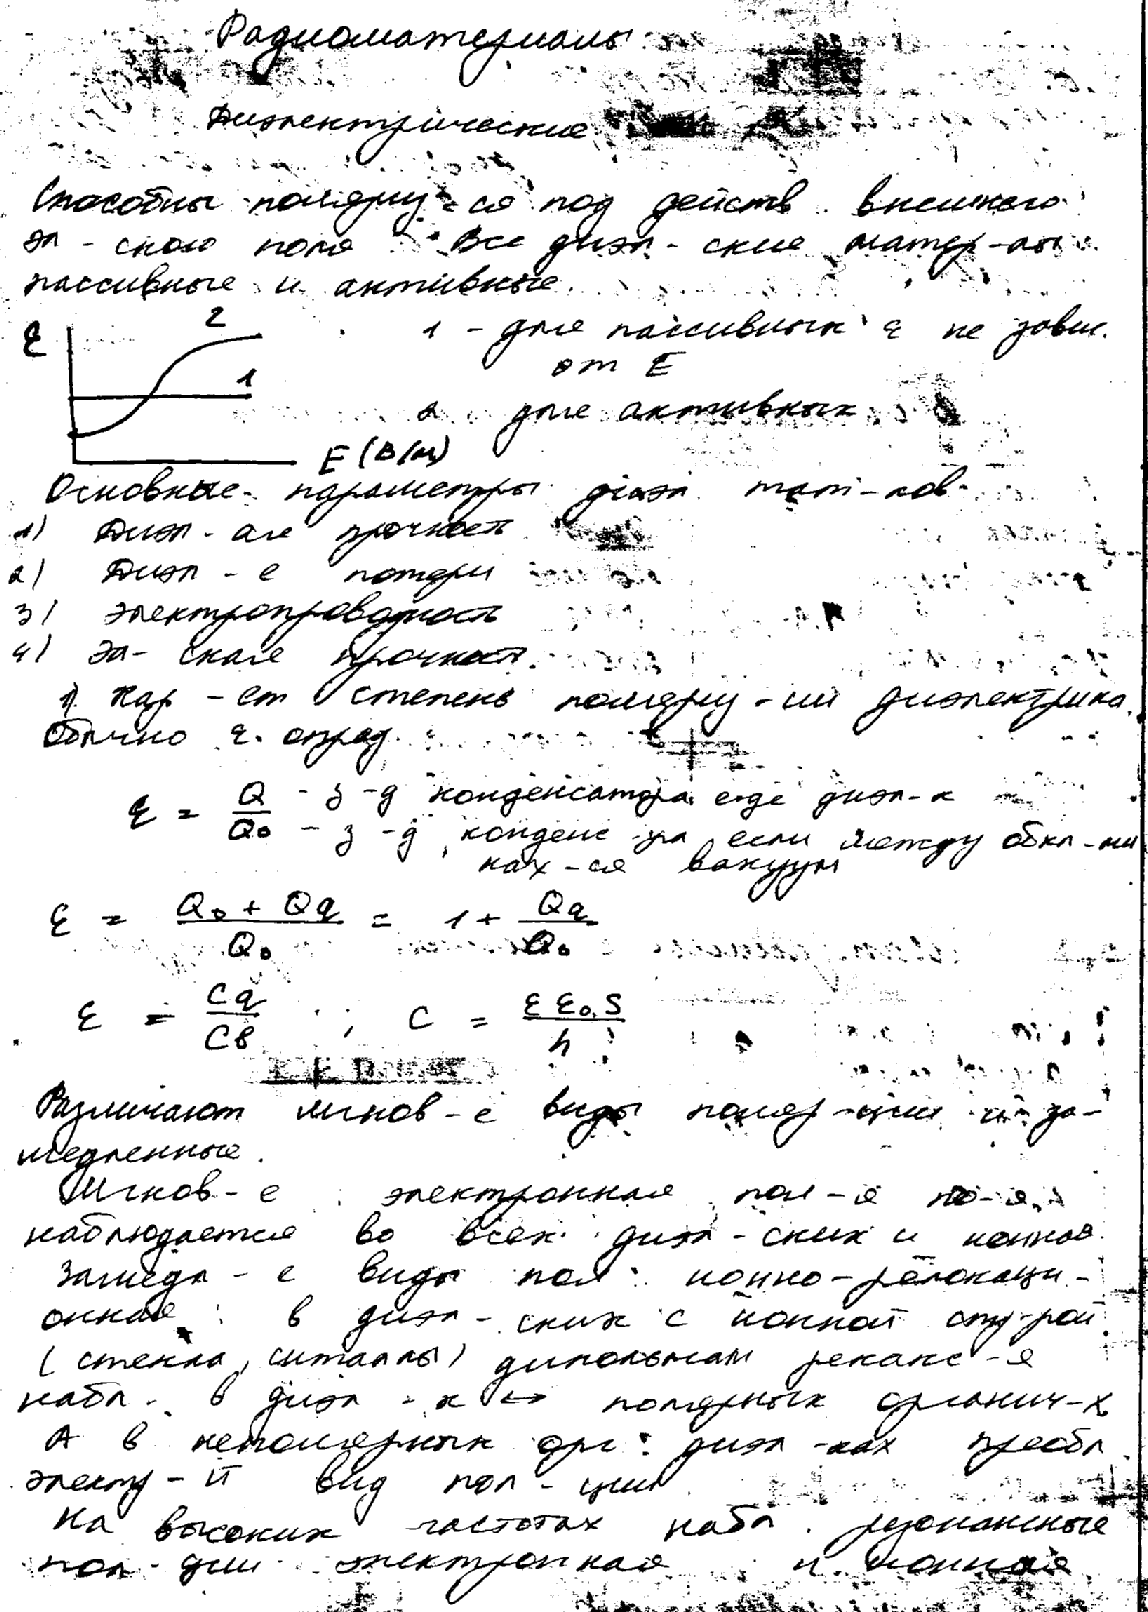 Радиоматериалы
Диэлектрические
Способны поляриз-ся под действ внешнего
эл-ского поля. Все диэл-ские матер-лы
пассивные и активные.
ε 2 1 - для пассивных ε не завис.
1 от E
2 для активных
E (В/м)
Основные параметры диэл мат-лов
1) Диэл-ая прочность
2) Диэл-е потери
3) электропроводность
4) Эл-ская прочность.
1) Хар-ет степень поляриз-ии диэлектрика.
Обычно ε опред.
ε = Q/Q₀ - з-д конденсатора где диэл-к
- з-д конденс-ра если между обкл-ми
нах-ся вакуум
ε = (Q₀ + Qд)/Q₀ = 1 + Qд/Q₀
ε = Cд/Cв ; C = εε₀S/h
Различают мгнов-е виды поляр-ции и за-
медленные.
Мгнов-е электронная пол-я
наблюдается во всех диэл-ских и ионная
Замедл-е виды пол: ионно-релокаци-
онная: в диэл-ских с ионной стр-рой
(стекла, ситаллы) дипольная релакс-я
набл. в диэл-х ↔ полярных органич-х
А в неполярных орг. диэл-ках преобл
электр-й вид пол-ции
На высоких частотах набл. резонансные
пол-ции электронная и ионная